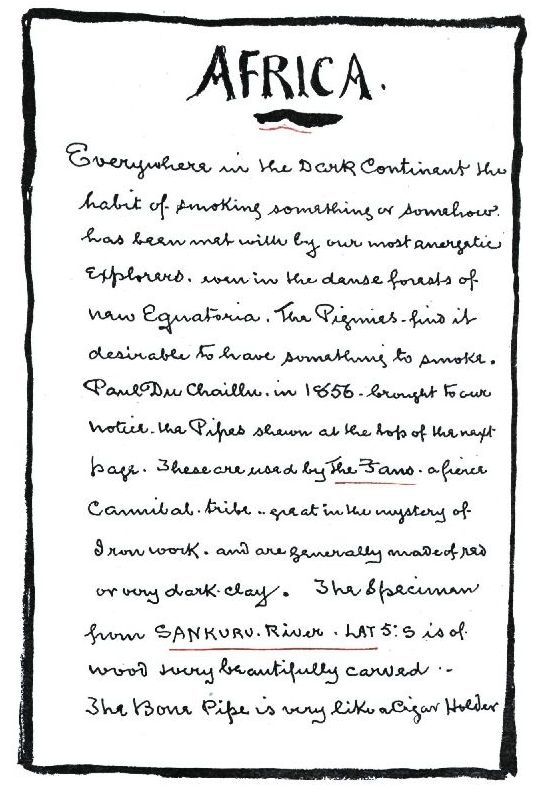 AFRICA.
Everywhere in the Dark Continent the
habit of smoking something or somehow.
has been met with by our most energetic
Explorers. even in the dense forests of
new Equatoria. The Pigmies - find it
desirable to have something to smoke.
Paul Du Chaillu. in 1856 - brought to our
notice - the Pipes shewn at the top of the next
page. These are used by The Fans. a fierce
Cannibal. tribe .. great in the mystery of
Iron work. and are generally made of red
or very dark clay. The Specimen
from SANKURU. River. LAT 5° S is of.
wood very beautifully carved. -
The Bone Pipe is very like a Cigar Holder